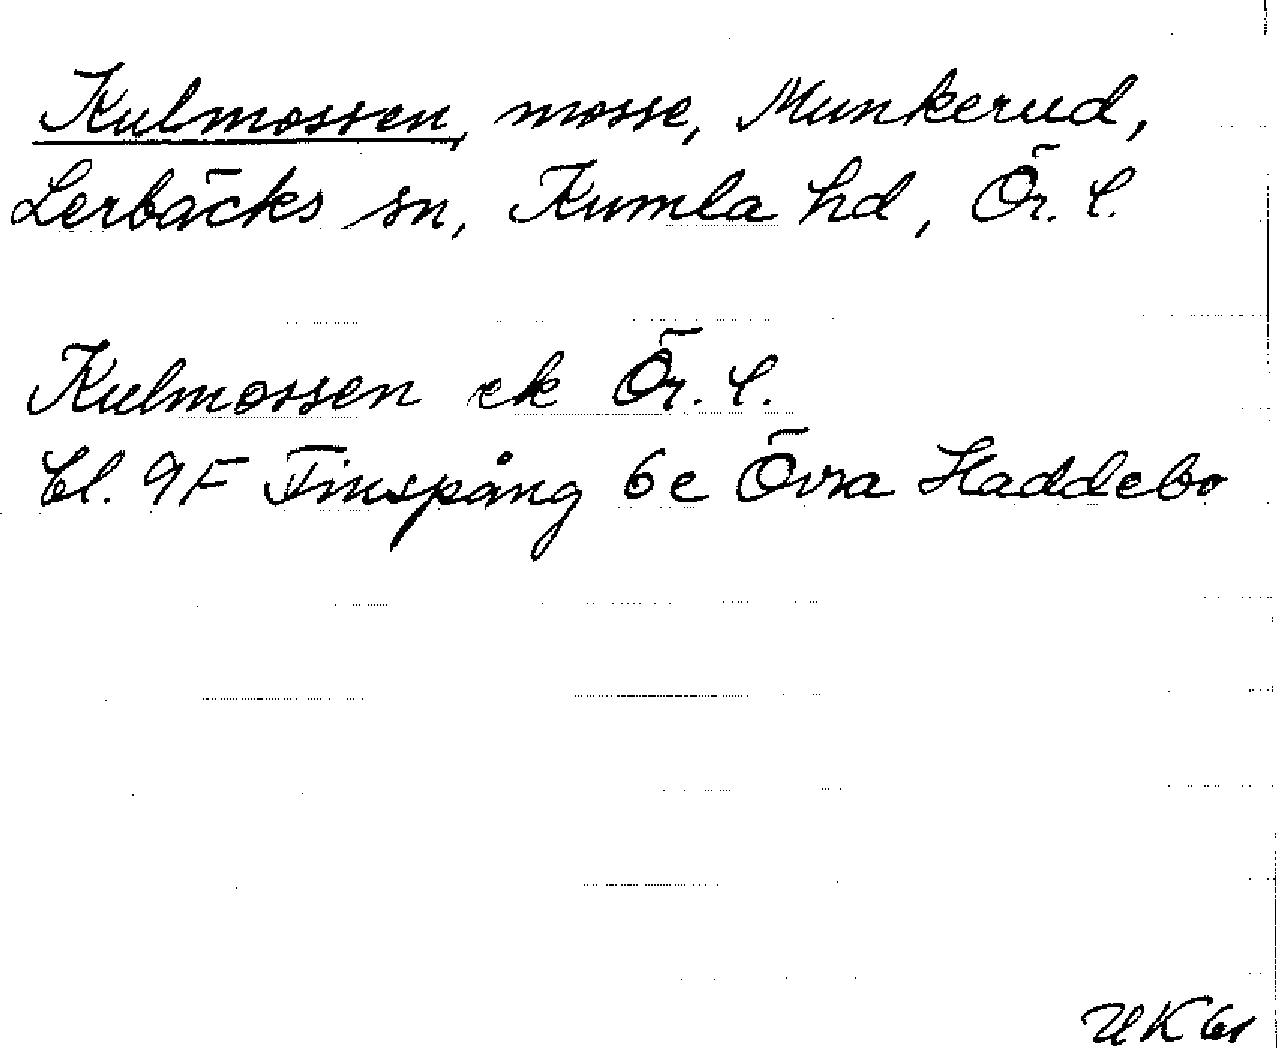 Kulmossen, mosse, Munkerud,
Lerbäcks sn, Kumla hd, Ör. l.
Kulmossen ek Ör. l.
bl. 9F Finspång 6e Övra Haddebo
UK 61